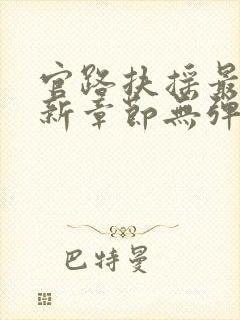 官路扶摇最
新章節無彈
巴特曼